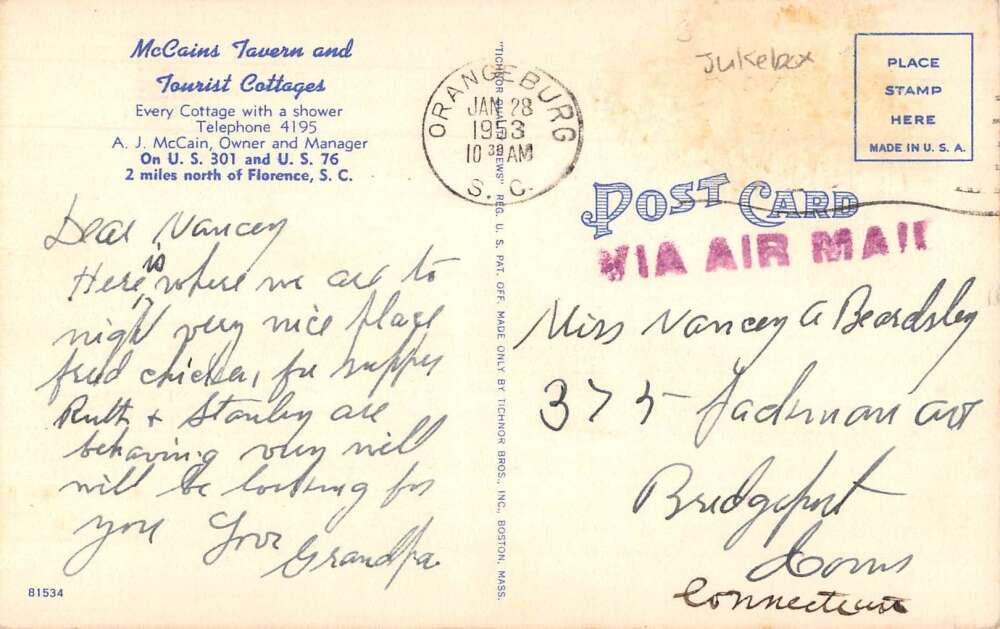 McCains Tavern and
Tourist Cottages
Every Cottage with a shower
Telephone 4195
A. J. McCain, Owner and Manager
On U. S. 301 and U. S. 76
2 miles north of Florence, S. C.
Dear Nancey
Here is where we are to
night very nice place
fried chicken, for supper
Ruth & Stanley are
behaving very well
will be looking for
you Love
Grandpa
81534
"TICHNOR QUALITY VIEWS" REG. U. S. PAT. OFF. MADE ONLY BY TICHNOR BROS., INC., BOSTON, MASS.
ORANGEBURG
JAN 28
1953
10 30 AM
S. C.
Jukebox
PLACE
STAMP
HERE
MADE IN U. S. A.
POST CARD
VIA AIR MAIL
Miss Nancey A Beardsley
375 Jackman ave
Bridgeport
Conn
Connecticut